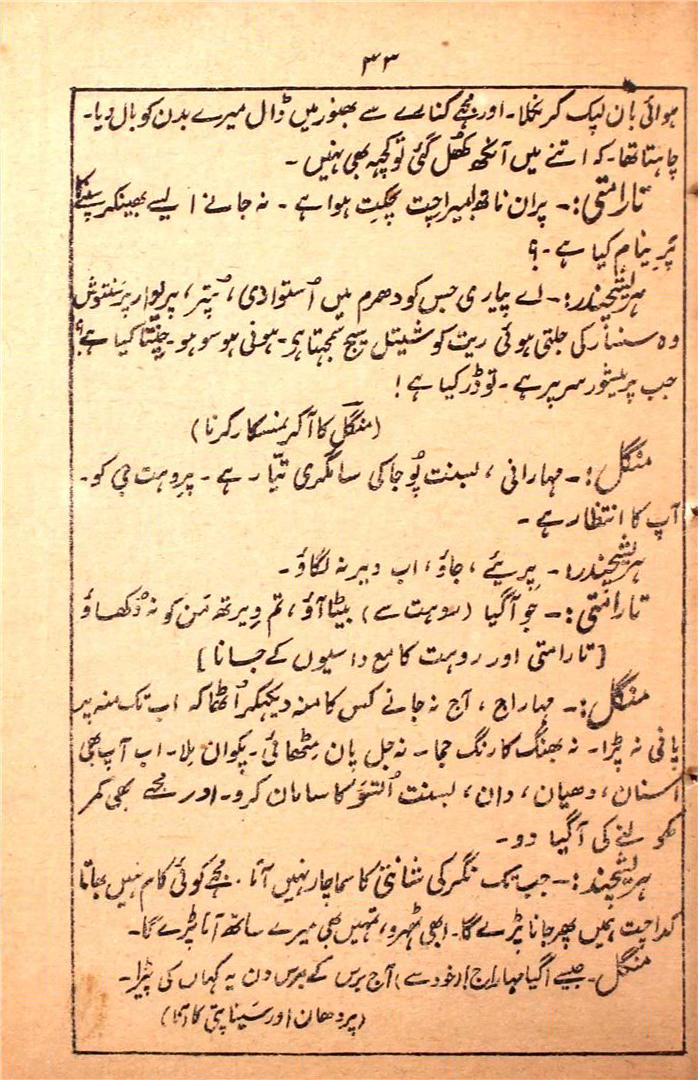 ۳۳
ہوائی بان لپک کر نکلا۔ اور مجھے کنارے سے بھنور میں ڈال میرے بدن کو بال دیا۔
چاہتا تھا۔ کہ اتنے میں آنکھ کھُل گئی تو کچھ بھی نہیں ۔
تارامتی:۔ پران ناتھ! میرا چِت چکِت ہوا ہے ۔ نہ جانے ایسے بھینکر سپنے کا
پَرِینام کیا ہے ۔ ؟
ہریشچندر:۔ اے پیاری جس کو دھرم میں اُستواری، پُتر، پریوار پر سنتوش
وہ سنسار کی جلتی ہوئی ریت کو شیتل سیج سمجہتا ہے۔ ہونی ہو سو ہو۔ چِنتا کیا ہے؟
جب پرمیشور سر پر ہے ۔ تو ڈر کیا ہے !
(منگل کا آکر نمسکار کرنا)
منگل:۔ مہارانی ، بسنت پُوجا کی سامگری تیّار ہے ۔ پروہت جی کو۔
آپ کا انتظار ہے ۔
ہریشچندر۔ پرِیئے ، جاؤ، اب دیر نہ لگاؤ ۔
تارامتی:۔ جو آگیا (روہت سے) بیٹا آؤ، تم وِیرتھ مَن کو نہ دُکھاؤ
[تارامتی اور روہت کا مع داسیوں کے جانا]
منگل:۔ مہاراج ، آج نہ جانے کس کا منہ دیکھکر اُٹھا کہ اب تک منہ پر
پانی نہ پڑا۔ نہ بھنگ کا رنگ جما۔ نہ جل پان مِٹھائی۔ پکوان ملا۔ اب آپ بھی
اسنان، دھیان، دان، بسنت اُتسَو کا سامان کرو۔ اور مجھے بھی کمر
کھولنے کی آگیا دو ۔
ہریشچند:۔ جب تک نگر کی شانتی کا سماچار نہیں آتا۔ مجھے کوئی کام نہیں بھاتا
کداچت ہمیں پھر جانا پڑے گا۔ ابھی ٹھہرو، تمہیں بھی میرے ساتھ آنا پڑے گا۔
منگل۔ جیسے آگیا مہاراج (خود سے) آج برس کے برس دن یہ کہاں کی پیڑا۔
(پردھان اور سیناپتی کا آنا)